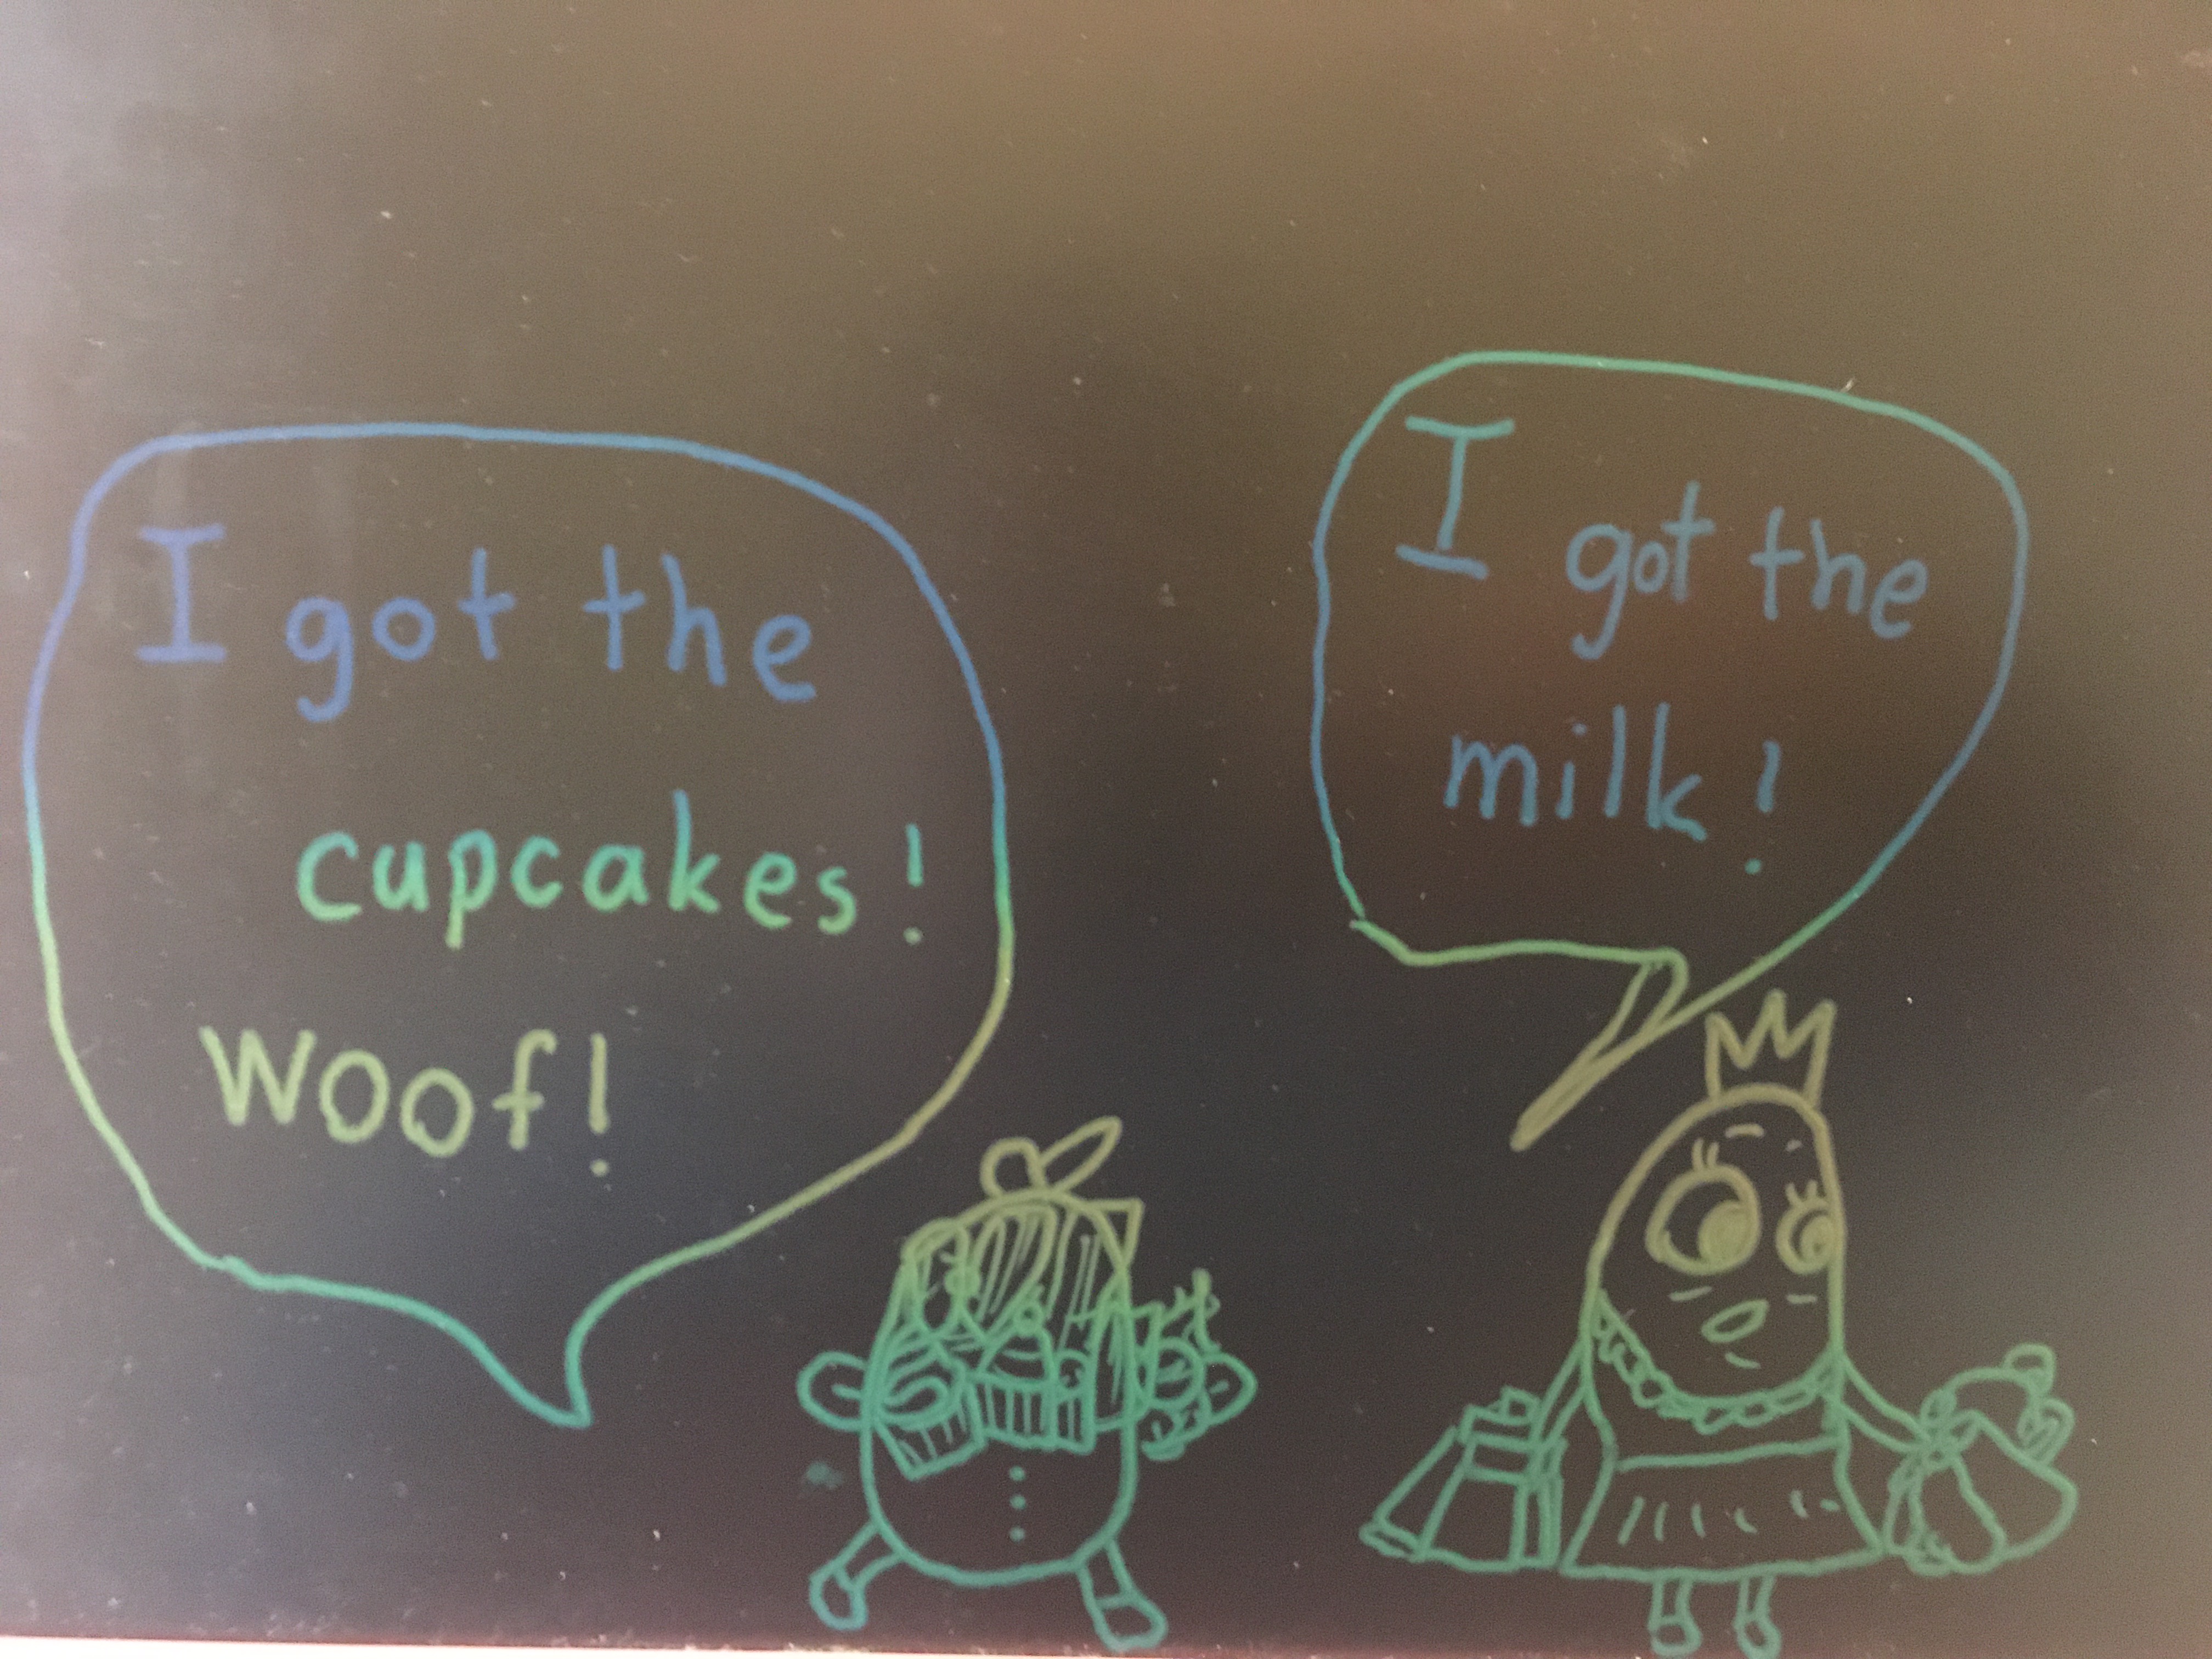 I got the
cupcakes!
Woof!
I got the
milk!